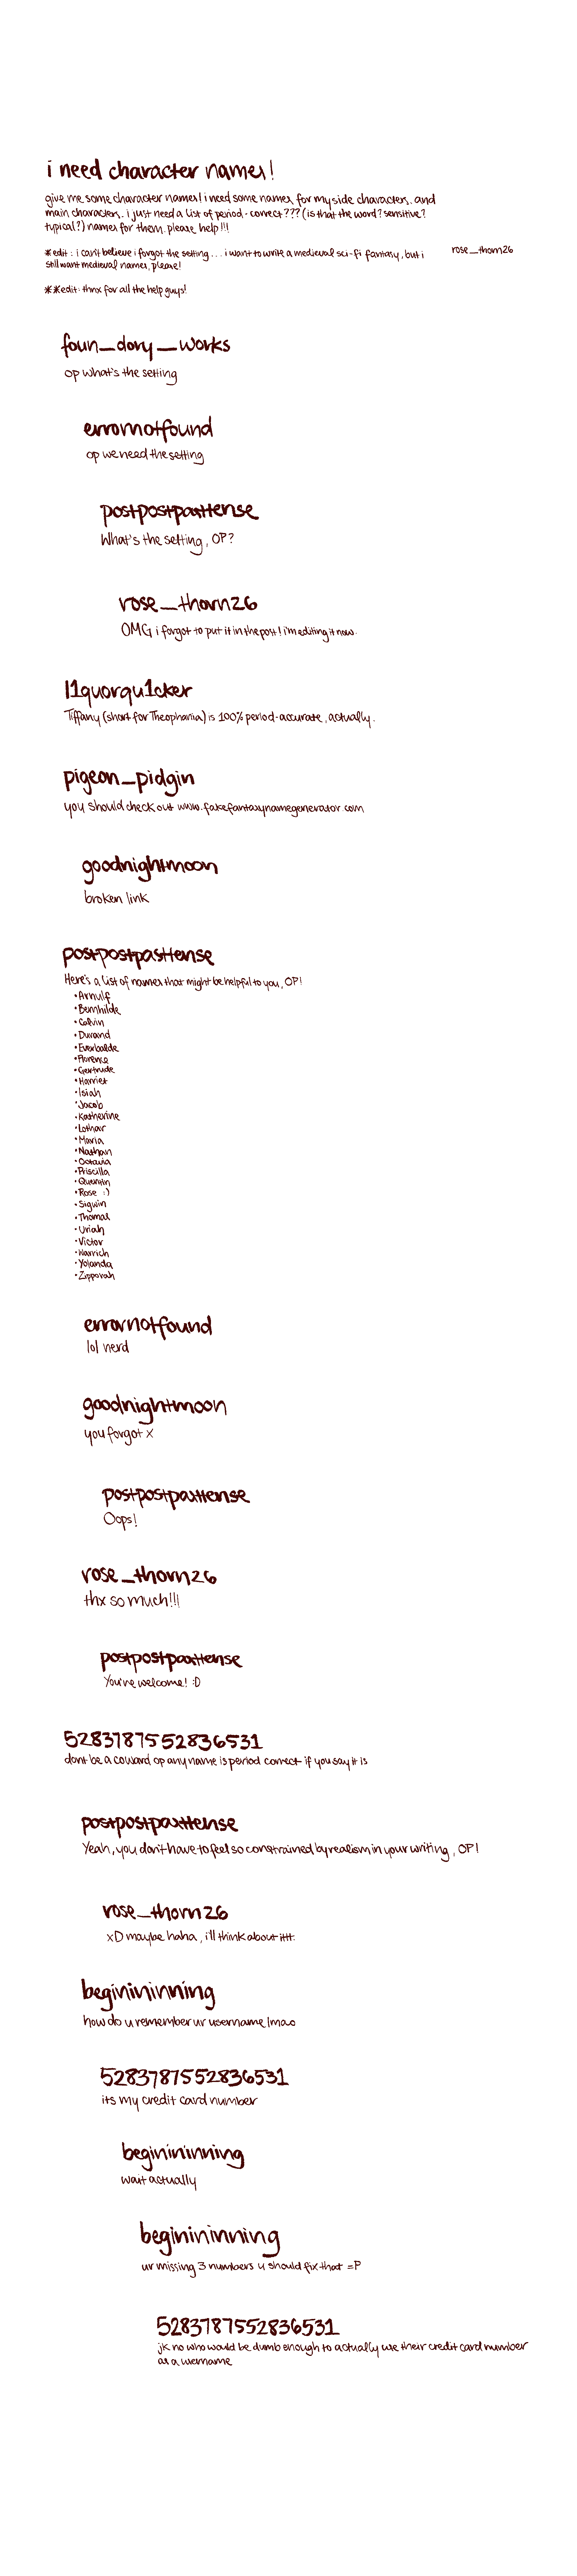 i need character names!
give me some character names! i need some names for my side characters, and
main characters. i just need a list of period-correct??? (is that the word? sensitive?
typical?) names for them. please help!!!
*edit: i can't believe i forgot the setting... i want to write a medieval sci-fi fantasy, but i
still want medieval names, please!
rose_thorn26
**edit: thnx for all the help guys!
foun_dory_works
op what's the setting
errornotfound
op we need the setting
postpostpasttense
What's the setting, OP?
rose_thorn26
OMG i forgot to put it in the post! i'm editing it now.
l1quorqu1cker
Tiffany (short for Theophania) is 100% period-accurate, actually.
pigeon_pidgin
you should check out www.fakefantasynamegenerator.com
goodnightmoon
broken link
postpostpasttense
Here's a list of names that might be helpful to you, OP!
• Arnulf
• Bernhilde
• Colvin
• Durand
•
• Florence
• Gertrude
• Harriet
• Isiah
• Jacob
• Katherine
• Lothar
• Maria
• Nathan
• Octavia
• Priscilla
• Quentin
• Rose :)
• Sigwin
• Thomas
• Uriah
• Victor
• Warrich
• Yolanda
• Zipporah
errornotfound
lol nerd
goodnightmoon
you forgot x
postpostpasttense
Oops!
rose_thorn26
thx so much!!!
postpostpasttense
You're welcome! :D
5283787552836531
dont be a coward op any name is period correct if you say it is
postpostpasttense
Yeah, you don't have to feel so constrained by realism in your writing, OP!
rose_thorn26
xD maybe haha, i'll think about ittt.
beginininning
how do u remember ur username lmao
5283787552836531
its my credit card number
beginininning
wait actually
beginininning
ur missing 3 numbers u should fix that =P
5283787552836531
jk no who would be dumb enough to actually use their credit card number
as a username